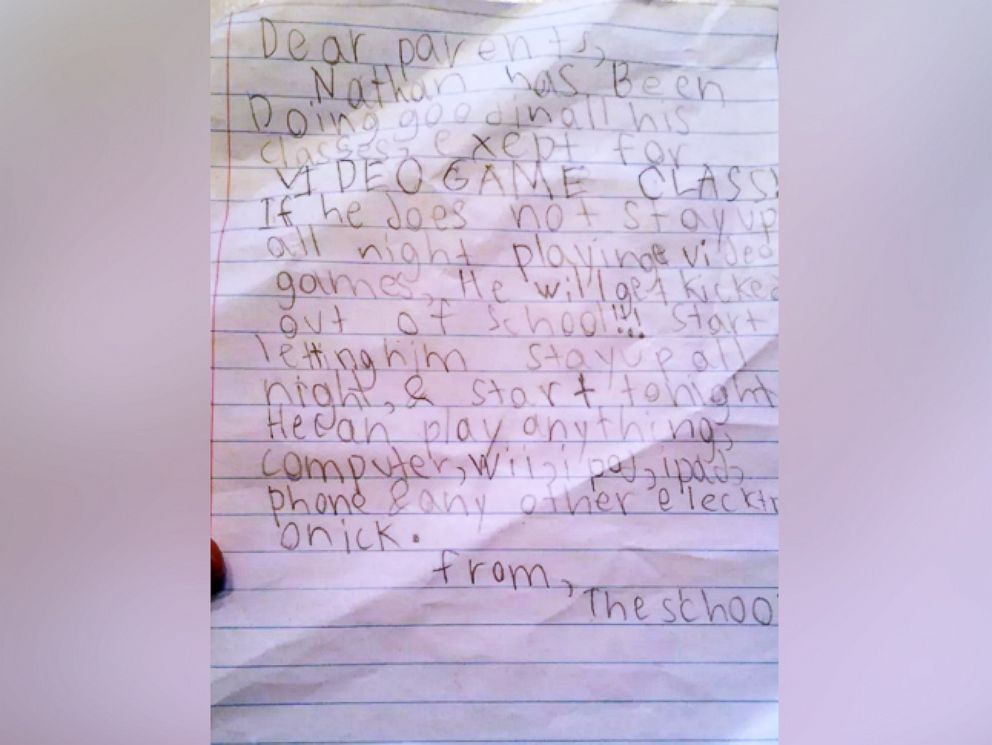 Dear parents,
Nathan has Been
Doing good in all his
classes, exept for
VIDEO GAME CLASS!
If he does not stay up
all night playing video
games, He will get kicked
out of school!!! start
letting him stay up all
night, & start tonight
He can play anything,
computer, wii, ipod, ipad,
phone & any other elecktr
onick.
from,
The school